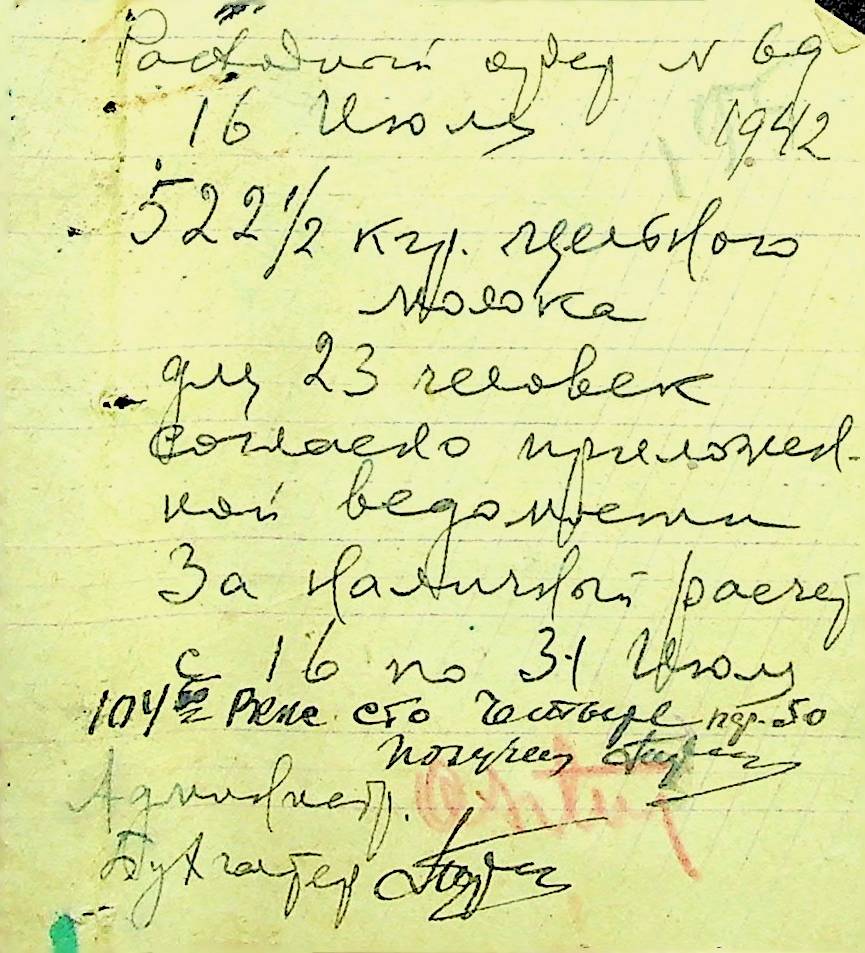 Расходный ордер N 69
16 Июля 1942
522 1/2 кгр. цельного
молока
для 23 человек
согласно приложен-
ной ведомости
За наличный расчет
с 16 по 31 Июля
104 50 сто четыре 50
Получил
Администр.
Бухгалтер